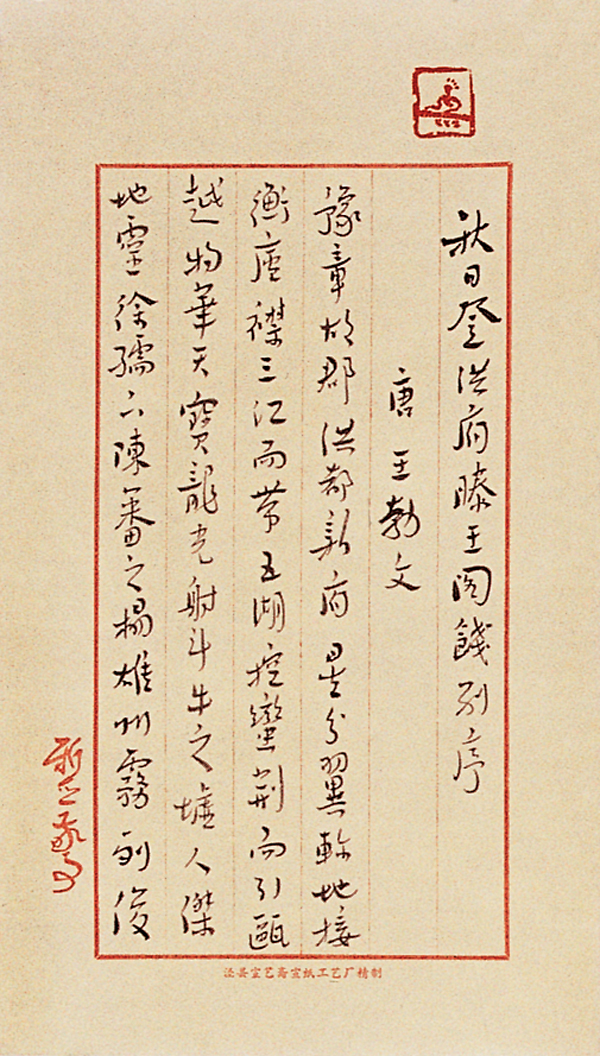 秋日登洪府滕王阁餞别序
唐王勃文
豫章故郡洪都新府星分翼軫地接
衡廬襟三江而帶五湖控蠻荆而引甌
越物華天寶龍光射斗牛之墟人傑
地靈徐孺下陳蕃之榻雄州霧列俊
泾县宣艺斋宣纸工艺厂精制